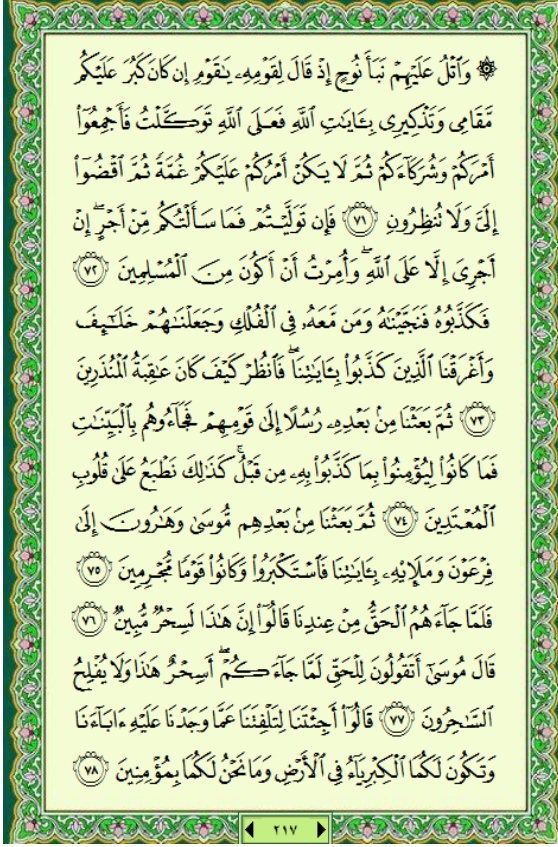 ۞ وَٱتْلُ عَلَيْهِمْ نَبَأَ نُوحٍ إِذْ قَالَ لِقَوْمِهِۦ يَٰقَوْمِ إِن كَانَ كَبُرَ عَلَيْكُم
مَّقَامِى وَتَذْكِيرِى بِـَٔايَٰتِ ٱللَّهِ فَعَلَى ٱللَّهِ تَوَكَّلْتُ فَأَجْمِعُوٓا۟
أَمْرَكُمْ وَشُرَكَآءَكُمْ ثُمَّ لَا يَكُنْ أَمْرُكُمْ عَلَيْكُمْ غُمَّةً ثُمَّ ٱقْضُوٓا۟
إِلَىَّ وَلَا تُنظِرُونِ ﴿٧١﴾ فَإِن تَوَلَّيْتُمْ فَمَا سَأَلْتُكُم مِّنْ أَجْرٍ ۖ إِنْ
أَجْرِىَ إِلَّا عَلَى ٱللَّهِ ۖ وَأُمِرْتُ أَنْ أَكُونَ مِنَ ٱلْمُسْلِمِينَ ﴿٧٢﴾
فَكَذَّبُوهُ فَنَجَّيْنَٰهُ وَمَن مَّعَهُۥ فِى ٱلْفُلْكِ وَجَعَلْنَٰهُمْ خَلَٰٓئِفَ
وَأَغْرَقْنَا ٱلَّذِينَ كَذَّبُوا۟ بِـَٔايَٰتِنَا ۖ فَٱنظُرْ كَيْفَ كَانَ عَٰقِبَةُ ٱلْمُنذَرِينَ
﴿٧٣﴾ ثُمَّ بَعَثْنَا مِنۢ بَعْدِهِۦ رُسُلًا إِلَىٰ قَوْمِهِمْ فَجَآءُوهُم بِٱلْبَيِّنَٰتِ
فَمَا كَانُوا۟ لِيُؤْمِنُوا۟ بِمَا كَذَّبُوا۟ بِهِۦ مِن قَبْلُ ۚ كَذَٰلِكَ نَطْبَعُ عَلَىٰ قُلُوبِ
ٱلْمُعْتَدِينَ ﴿٧٤﴾ ثُمَّ بَعَثْنَا مِنۢ بَعْدِهِم مُّوسَىٰ وَهَٰرُونَ إِلَىٰ
فِرْعَوْنَ وَمَلَإِي۟هِۦ بِـَٔايَٰتِنَا فَٱسْتَكْبَرُوا۟ وَكَانُوا۟ قَوْمًا مُّجْرِمِينَ ﴿٧٥﴾
فَلَمَّا جَآءَهُمُ ٱلْحَقُّ مِنْ عِندِنَا قَالُوٓا۟ إِنَّ هَٰذَا لَسِحْرٌ مُّبِينٌ ﴿٧٦﴾
قَالَ مُوسَىٰٓ أَتَقُولُونَ لِلْحَقِّ لَمَّا جَآءَكُمْ ۖ أَسِحْرٌ هَٰذَا وَلَا يُفْلِحُ
ٱلسَّٰحِرُونَ ﴿٧٧﴾ قَالُوٓا۟ أَجِئْتَنَا لِتَلْفِتَنَا عَمَّا وَجَدْنَا عَلَيْهِ ءَابَآءَنَا
وَتَكُونَ لَكُمَا ٱلْكِبْرِيَآءُ فِى ٱلْأَرْضِ وَمَا نَحْنُ لَكُمَا بِمُؤْمِنِينَ ﴿٧٨﴾
٢١٧